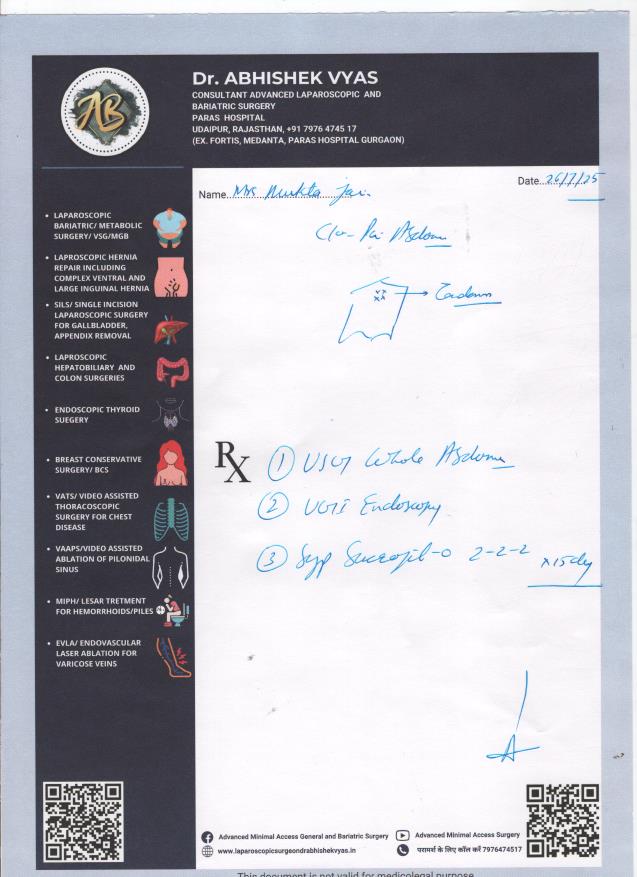 AB
Dr. ABHISHEK VYAS
CONSULTANT ADVANCED LAPAROSCOPIC AND
BARIATRIC SURGERY
PARAS HOSPITAL
UDAIPUR, RAJASTHAN, +91 7976 4745 17
(EX. FORTIS, MEDANTA, PARAS HOSPITAL GURGAON)
Date 26/7/25
Name Mrs Mukta Jain
C/o- Pain Abdomen
Rx
① USG Whole Abdomen
② UGI Endoscopy
③ Syp Sucrafil-O 2-2-2 x 15 day
• LAPAROSCOPIC
BARIATRIC/ METABOLIC
SURGERY/ VSG/MGB
• LAPROSCOPIC HERNIA
REPAIR INCLUDING
COMPLEX VENTRAL AND
LARGE INGUINAL HERNIA
• SILS/ SINGLE INCISION
LAPAROSCOPIC SURGERY
FOR GALLBLADDER,
APPENDIX REMOVAL
• LAPROSCOPIC
HEPATOBILIARY AND
COLON SURGERIES
• ENDOSCOPIC THYROID
SUEGERY
• BREAST CONSERVATIVE
SURGERY/ BCS
• VATS/ VIDEO ASSISTED
THORACOSCOPIC
SURGERY FOR CHEST
DISEASE
• VAAPS/VIDEO ASSISTED
ABLATION OF PILONIDAL
SINUS
• MIPH/ LESAR TRETMENT
FOR HEMORRHOIDS/PILES
• EVLA/ ENDOVASCULAR
LASER ABLATION FOR
VARICOSE VEINS
Advanced Minimal Access General and Bariatric Surgery
Advanced Minimal Access Surgery
www.laparoscopicsurgeondrabhishekvyas.in
परामर्श के लिए कॉल करें 7976474517
This document is not valid for medicolegal purpose